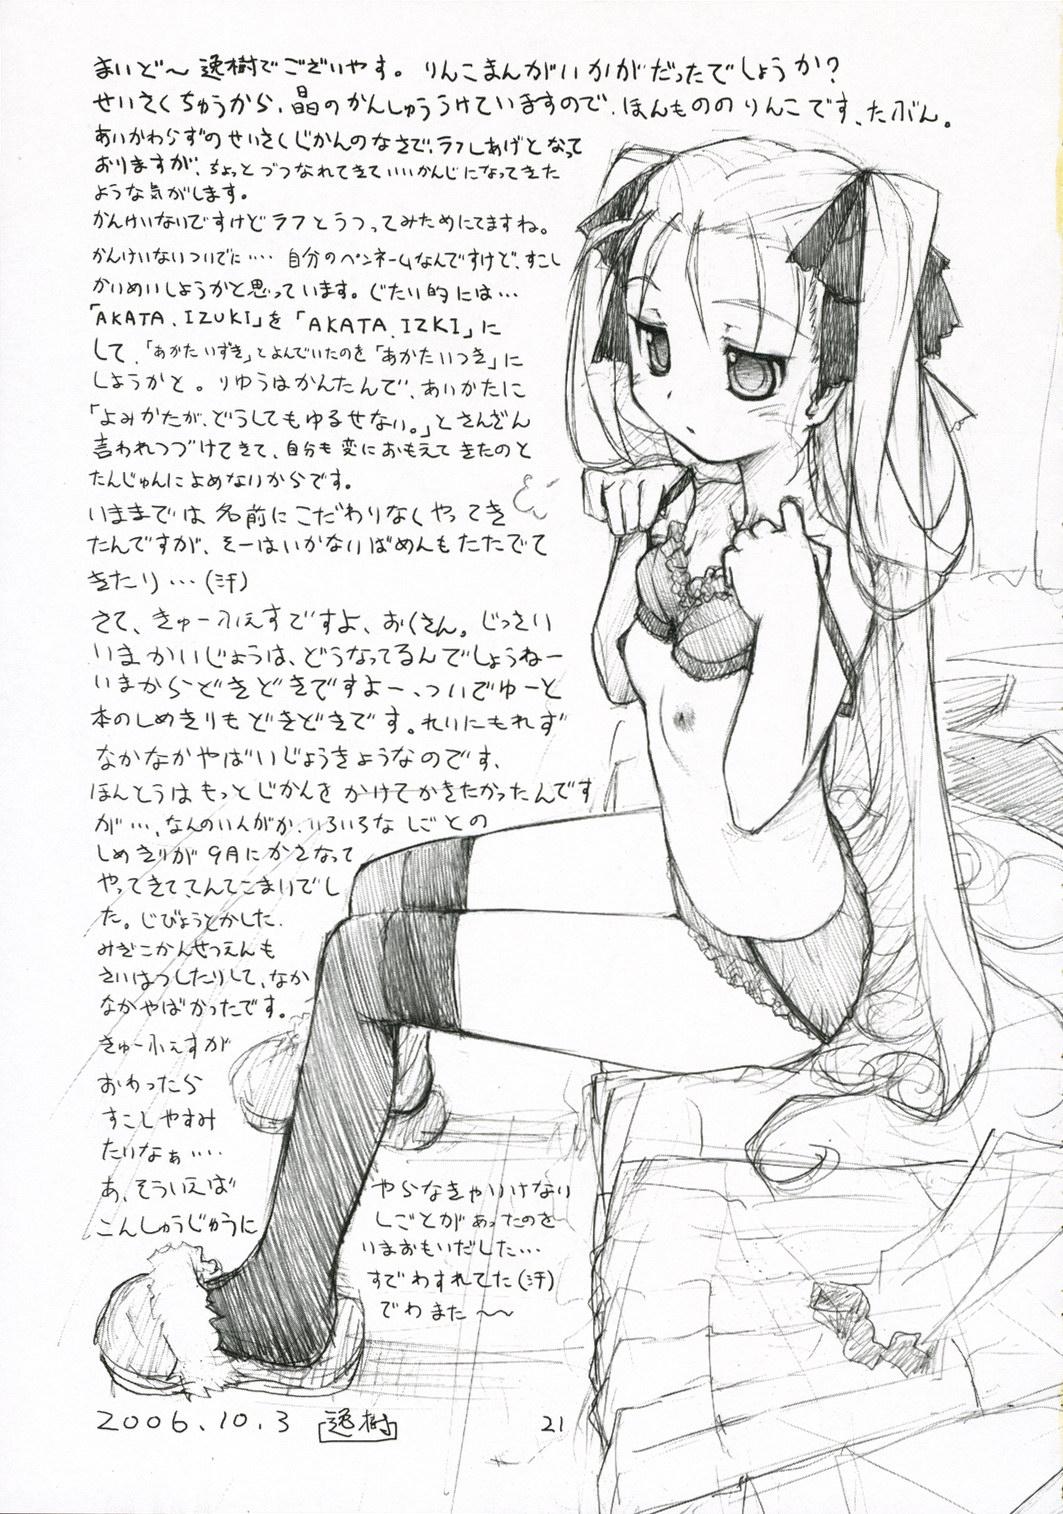 まいど〜逸樹でございやす。りんこまんがいかがだったでしょうか?
せいさくちゅうから、晶のかんしゅううけていますので、ほんもののりんこです、たぶん。
あいかわらずのせいさくじかんのなさで、ラフしあげとなって
おりますが、ちょっとづつなれてきていいかんじになってきた
ような気がします。
かんけいないですけどラフとうつってみためにてますね。
かんけいないついでに‥‥自分のペンネームなんですけど、すこし
かいめいしようかと思っています。じたい的には…
「AKATA.IZUKI」を「AKATA.IZKI」に
して、「あかたいずき」とよんでいたのを「あかたいつき」に
しようかと。りゆうはかんたんで、あいかたに
「よみかたが、どうしてもゆるせない。」とさんざん
言われつづけてきて、自分も変におもえてきたのと
たんじゅんによめないからです。
いままでは名前にこだわりなくやってき
たんですが、そーはいかないばめんもたたでて
きたり…(汗)
さて、きゅーふぇすですよ、おくさん。じっさい
いまかいじょうは、どうなってるんでしょうねー
いまからどきどきですよー、ついでゆーと
本のしめきりもどきどきです。れいにもれず
なかなかやばいじょうきょうなのです、
ほんとうはもっとじかんをかけてかきたかったんです
が…、なんのいんがか、いろいろなしごとの
しめきりが9月にかさなって
やってきててんてこまいでし
た。じびょうとかした、
みぎこかんせつえんも
さいはつしたりして、なか
なかやばかったです。
きゅーふぇすが
おわったら
すこしやすみ
たいなぁ‥‥
あ、そういえば
こんしゅうじゅうに
やらなきゃいけない
しごとがあったのを
いまおもいだした…
すでわすれてた(汗)
でわまた〜〜
2006.10.3 逸樹
21